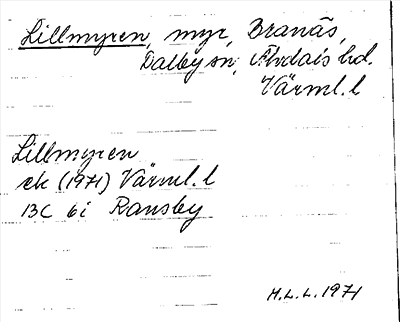 Lillmyren, myr, Branäs,
Dalby sn, Älvdals hd.
Värml. l
Lillmyren
ek (1971) Värml. l
13C 6i Ransby
H.L.L. 1971